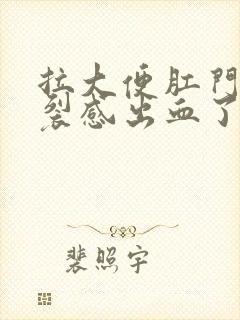 拉大便肛門
裂感出血了
裴照宇